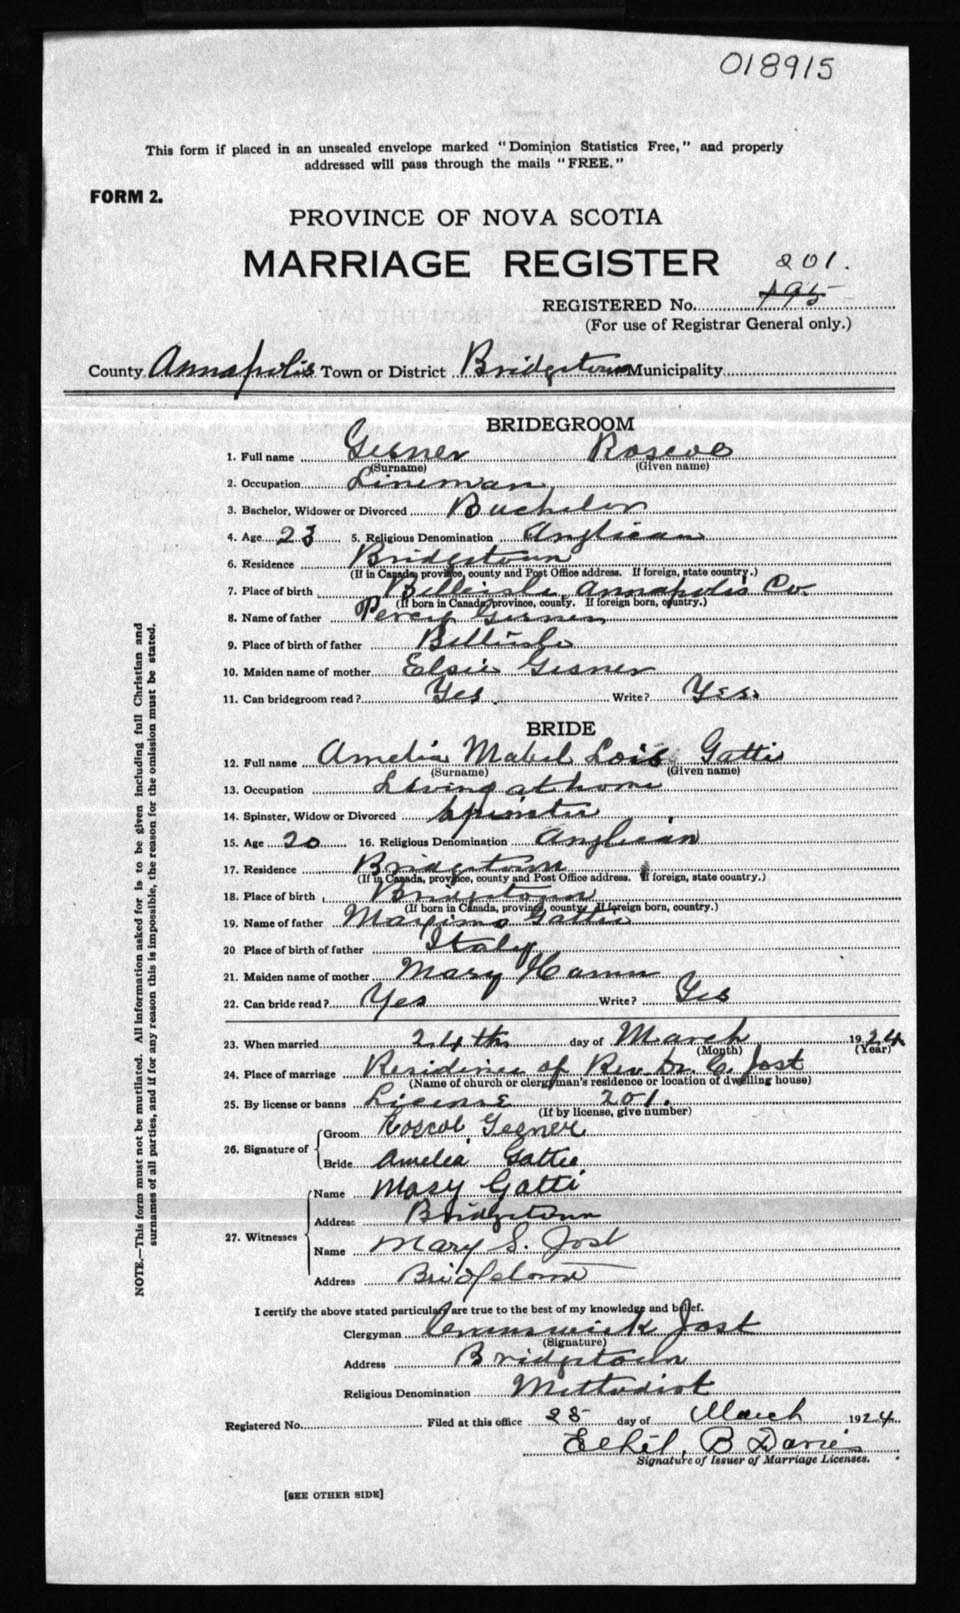 018915
This form if placed in an unsealed envelope marked "Dominion Statistics Free," and properly
addressed will pass through the mails "FREE."
FORM 2.
PROVINCE OF NOVA SCOTIA
MARRIAGE REGISTER
201.
REGISTERED No. 195
(For use of Registrar General only.)
County Annapolis Town or District Bridgetown Municipality
BRIDEGROOM
1. Full name Gesner Roscoe
(Surname) (Given name)
2. Occupation Lineman
3. Bachelor, Widower or Divorced Bachelor
4. Age 23 5. Religious Denomination Anglican
6. Residence Bridgetown
(If in Canada, province, county and Post Office address. If foreign, state country.)
7. Place of birth Belleisle Annapolis Co.
(If born in Canada, province, county. If foreign born, country.)
8. Name of father Percy Gesner
9. Place of birth of father Belleisle
10. Maiden name of mother Elsie Gesner
11. Can bridegroom read? Yes. Write? Yes.
BRIDE
12. Full name Amelia Mabel Lois Gatti
(Surname) (Given name)
13. Occupation Living at home
14. Spinster, Widow or Divorced Spinster
15. Age 20 16. Religious Denomination Anglican
17. Residence Bridgetown
(If in Canada, province, county and Post Office address. If foreign, state country.)
18. Place of birth Bridgetown
(If born in Canada, province, county. If foreign born, country.)
19. Name of father Maximo Gattie
20 Place of birth of father Italy
21. Maiden name of mother Mary Hamm
22. Can bride read? Yes Write? Yes
23. When married 24th day of March 1924
(Month) (Year)
24. Place of marriage Residence of Rev. Dr. C. Jost
(Name of church or clergyman's residence or location of dwelling house)
25. By license or banns License 201.
(If by license, give number)
26. Signature of Groom Roscoe Gesner
Bride Amelia Gattie
27. Witnesses Name Mary Gatti
Address Bridgetown
Name Mary S. Jost
Address Bridgetown
I certify the above stated particulars are true to the best of my knowledge and belief.
Clergyman Cranswick Jost
(Signature)
Address Bridgetown
Religious Denomination Methodist
Registered No. Filed at this office 25 day of March 1924
Ethel B Davies
Signature of Issuer of Marriage Licenses.
[SEE OTHER SIDE]
NOTE.—This form must not be mutilated. All information asked for is to be given including full Christian and
surnames of all parties, and if for any reason this is impossible, the reason for the omission must be stated.